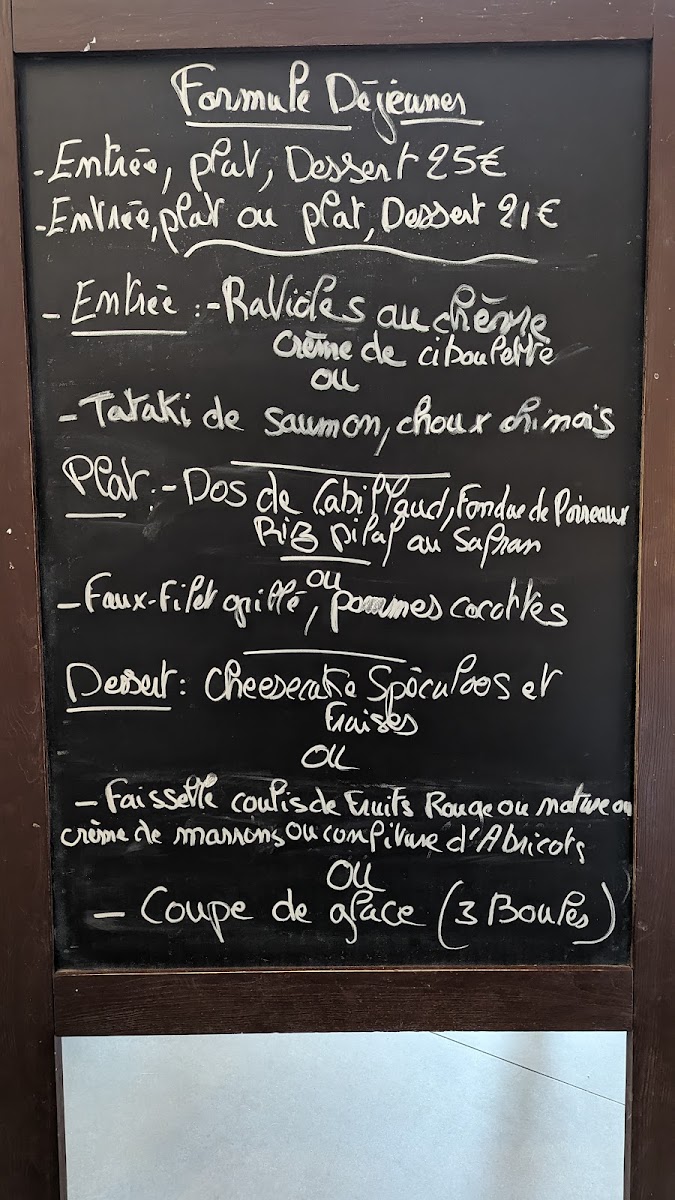 Formule Déjeuner
- Entrée, plat, Dessert 25€
- Entrée, plat ou plat, Dessert 21€
- Entrée : - Ravioles au chèvre
crème de ciboulette
ou
- Tataki de saumon, choux chinois
Plat : - Dos de Cabillaud, Fondue de Poireaux
Riz pilaf au Safran
ou
- Faux-Filet grillé, pommes cocottes
Dessert : Cheesecake Spéculoos et
Fraises
ou
- Faisselle coulis de Fruits Rouge ou nature ou
crème de marrons ou confiture d'Abricots
ou
- Coupe de glace (3 Boules)